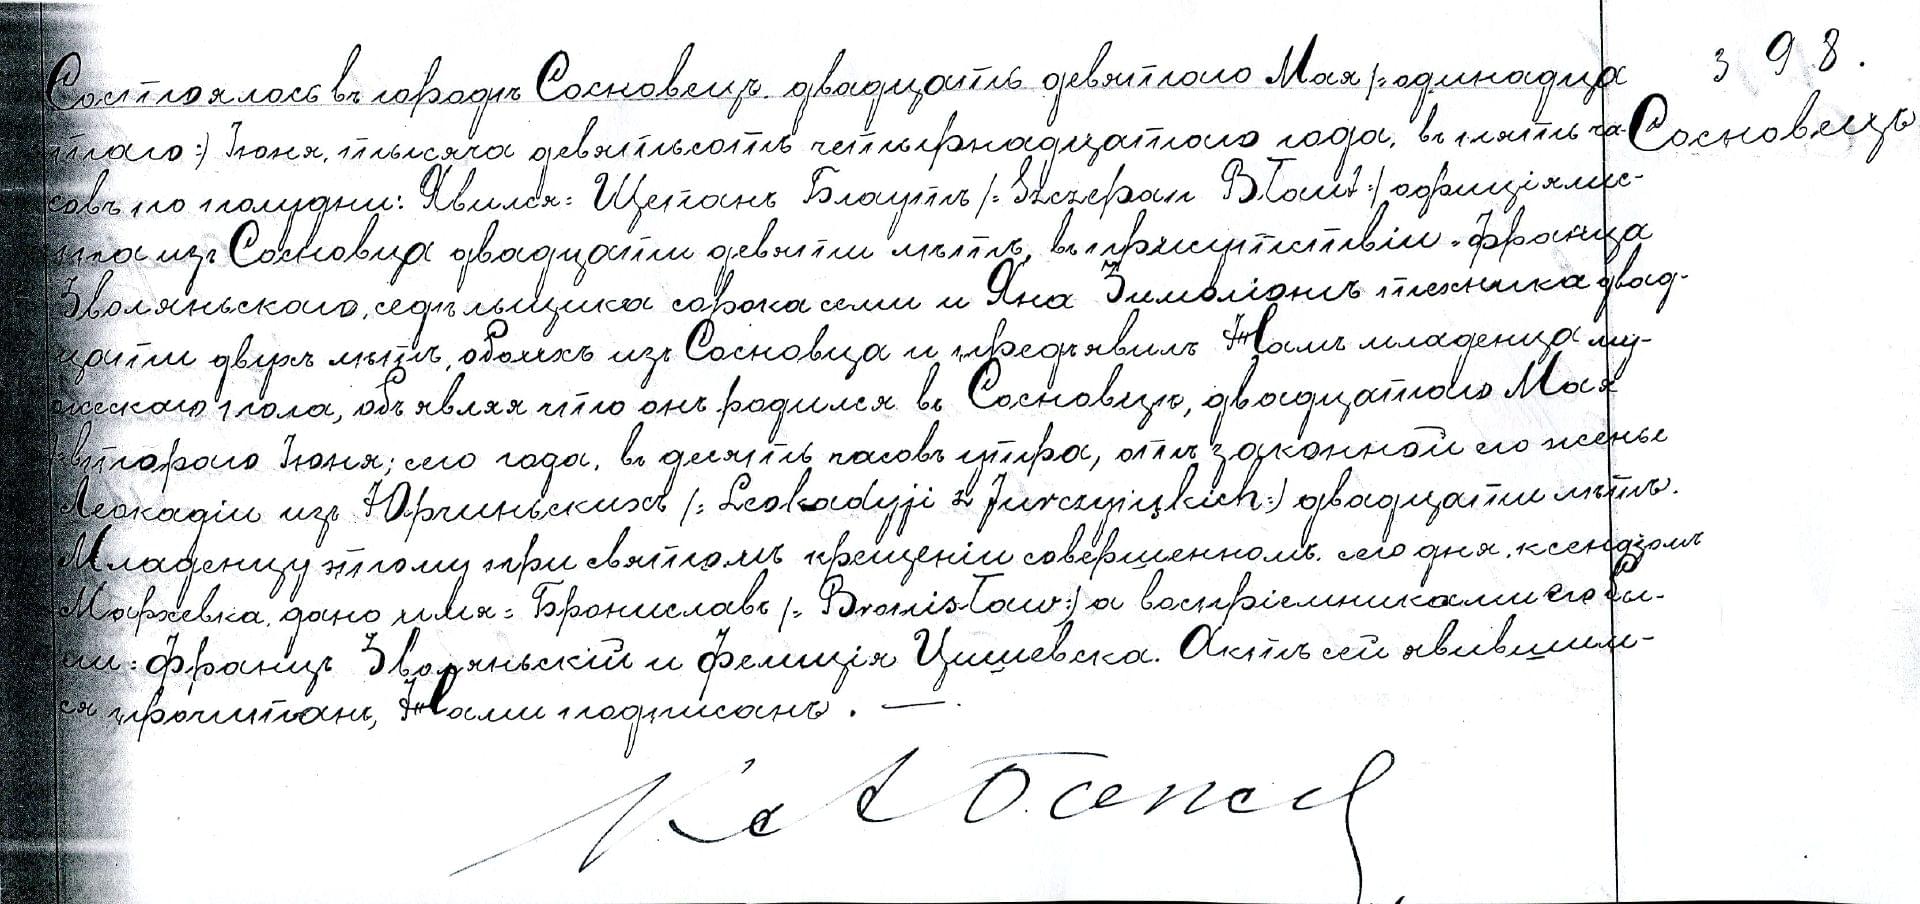 398.
Сосновецъ
Состоялось въ городѣ Сосновецѣ. двадцать девятого Мая /: одинадца
таго :/ Іюня, тысяча девятьсотъ четырнадцатого года, въ пять ча-
совъ по полудни: Явился: Щепанъ Блаутъ /: Szczepan Błaut :/ официялис-
та изъ Сосновца двадцати девяти лѣтъ, въ присутствіи Франца
Зволяньского, седѣльщика сорока семи и Яна Зимоліонъ техника двад-
цати двухъ лѣтъ, обоихъ изъ Сосновца и предъявилъ Намъ младенца му-
жескаго пола, объявляя что онъ родился въ Сосновцѣ, двадцатого Мая
/второго Іюня; сего года, въ десять часовъ утра, отъ законной его жены
Леокадіи изъ Юрчиньскихъ /: Leokadyji z Jurczyńskich :/ двадцати лѣтъ.
Младенцу этому при святомъ крещеніи совершенномъ. сего дня, ксендзомъ
Мархевка, дано имя: Брониславъ /: Bronisław :/ а воспріемниками его бы-
ли: Францъ Зволяньскій и Фелиція Цишевска. Актъ сей явившим-
ся прочитанъ, Нами подписанъ. —.